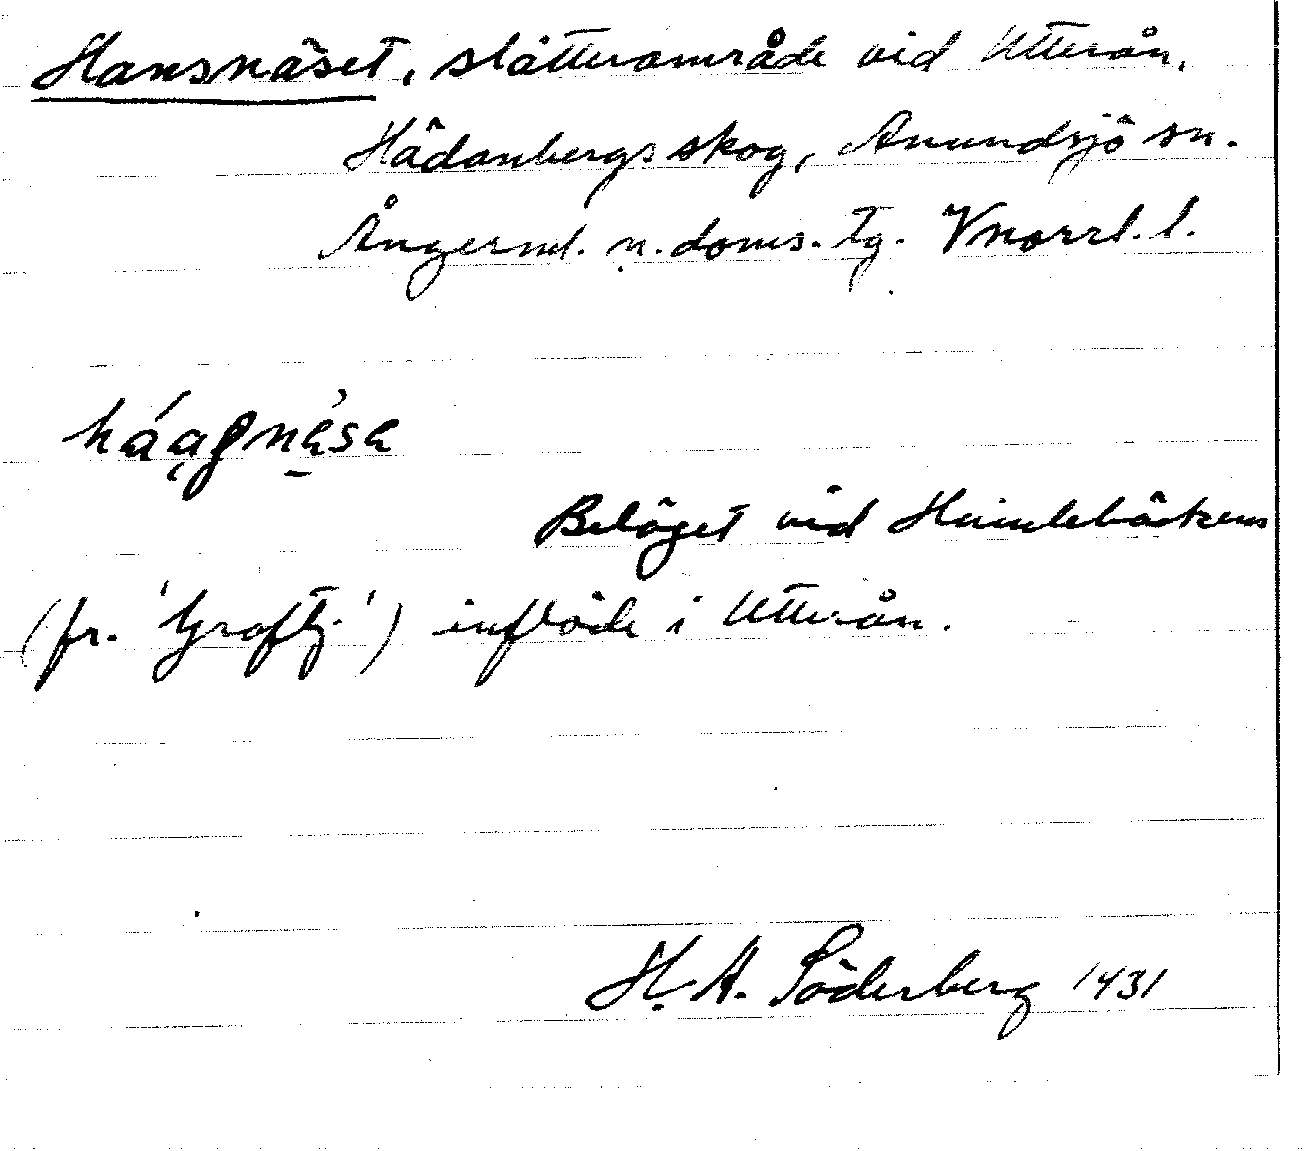 Hansnäset, slåtterområde vid Utterån,
Hädanbergs skog, Anundsjö sn.
Ångerml. n. doms. tg. Vnorrl. l.
Beläget vid Himlebäckens
(fr. 'Groftj.') inflöde i Utterån.
H. A. Söderberg 1931